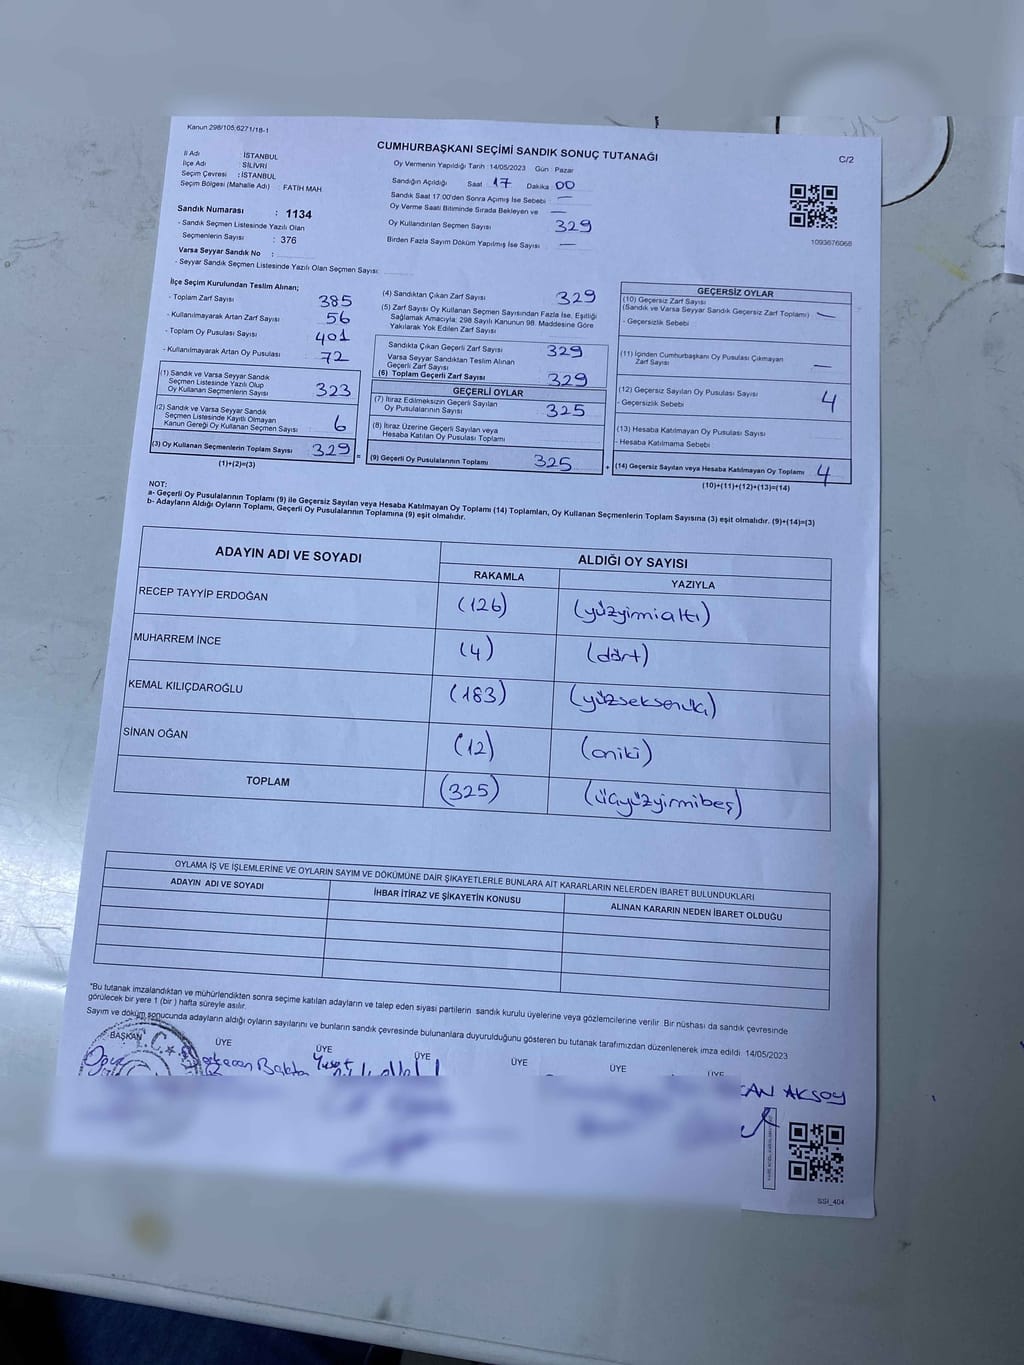 Kanun 298/105,6271/18-1
CUMHURBAŞKANI SEÇİMİ SANDIK SONUÇ TUTANAĞI
C/2
İl Adı : İSTANBUL
İlçe Adı : SİLİVRİ
Seçim Çevresi : İSTANBUL
Seçim Bölgesi (Mahalle Adı) : FATİH MAH
Sandık Numarası : 1134
- Sandık Seçmen Listesinde Yazılı Olan
Seçmenlerin Sayısı : 376
Varsa Seyyar Sandık No :
- Seyyar Sandık Seçmen Listesinde Yazılı Olan Seçmen Sayısı
Oy Vermenin Yapıldığı Tarih : 14/05/2023 Gün : Pazar
Sandığın Açıldığı Saat 17 Dakika 00
Sandık Saat 17:00'den Sonra Açımış İse Sebebi —
Oy Verme Saati Bitiminde Sırada Bekleyen ve —
Oy Kullandırılan Seçmen Sayısı 329
Birden Fazla Sayım Döküm Yapılmış İse Sayısı —
1093676068
İlçe Seçim Kurulundan Teslim Alınan;
- Toplam Zarf Sayısı 385
- Kullanılmayarak Artan Zarf Sayısı 56
- Toplam Oy Pusulası Sayısı 401
- Kullanılmayarak Artan Oy Pusulası 72
(1) Sandık ve Varsa Seyyar Sandık
Seçmen Listesinde Yazılı Olup
Oy Kullanan Seçmenlerin Sayısı 323
(2) Sandık ve Varsa Seyyar Sandık
Seçmen Listesinde Kayıtlı Olmayan
Kanun Gereği Oy Kullanan Seçmen Sayısı 6
(3) Oy Kullanan Seçmenlerin Toplam Sayısı 329
(1)+(2)=(3)
=
(4) Sandıktan Çıkan Zarf Sayısı 329
(5) Zarf Sayısı Oy Kullanan Seçmen Sayısından Fazla İse, Eşitliği
Sağlamak Amacıyla; 298 Sayılı Kanunun 98. Maddesine Göre
Yakılarak Yok Edilen Zarf Sayısı
Sandıkta Çıkan Geçerli Zarf Sayısı 329
Varsa Seyyar Sandıktan Teslim Alınan
Geçerli Zarf Sayısı
(6) Toplam Geçerli Zarf Sayısı 329
GEÇERLİ OYLAR
(7) İtiraz Edilmeksizin Geçerli Sayılan
Oy Pusulalarının Sayısı 325
(8) İtiraz Üzerine Geçerli Sayılan veya
Hesaba Katılan Oy Pusulası Toplamı
(9) Geçerli Oy Pusulalarının Toplamı 325
+
GEÇERSİZ OYLAR
(10) Geçersiz Zarf Sayısı
(Sandık ve Varsa Seyyar Sandık Geçersiz Zarf Toplamı) —
- Geçersizlik Sebebi
(11) İçinden Cumhurbaşkanı Oy Pusulası Çıkmayan
Zarf Sayısı —
(12) Geçersiz Sayılan Oy Pusulası Sayısı 4
- Geçersizlik Sebebi
(13) Hesaba Katılmayan Oy Pusulası Sayısı
- Hesaba Katılmama Sebebi
(14) Geçersiz Sayılan veya Hesaba Katılmayan Oy Toplamı 4
(10)+(11)+(12)+(13)=(14)
NOT:
a- Geçerli Oy Pusulalarının Toplamı (9) ile Geçersiz Sayılan veya Hesaba Katılmayan Oy Toplamı (14) Toplamları, Oy Kullanan Seçmenlerin Toplam Sayısına (3) eşit olmalıdır. (9)+(14)=(3)
b- Adayların Aldığı Oyların Toplamı, Geçerli Oy Pusulalarının Toplamına (9) eşit olmalıdır.
ADAYIN ADI VE SOYADI ALDIĞI OY SAYISI
RAKAMLA YAZIYLA
RECEP TAYYİP ERDOĞAN (126) (yüzyirmialtı)
MUHARREM İNCE (4) (dört)
KEMAL KILIÇDAROĞLU (183)
SİNAN OĞAN (12) (oniki)
TOPLAM (325) (üçyüzyirmibeş)
OYLAMA İŞ VE İŞLEMLERİNE VE OYLARIN SAYIM VE DÖKÜMÜNE DAİR ŞİKAYETLERLE BUNLARA AİT KARARLARIN NELERDEN İBARET BULUNDUKLARI
ADAYIN ADI VE SOYADI İHBAR İTİRAZ VE ŞİKAYETİN KONUSU ALINAN KARARIN NEDEN İBARET OLDUĞU
*Bu tutanak imzalandıktan ve mühürlendikten sonra seçime katılan adayların ve talep eden siyasi partilerin sandık kurulu üyelerine veya gözlemcilerine verilir. Bir nüshası da sandık çevresinde
görülecek bir yere 1 (bir) hafta süreyle asılır.
Sayım ve döküm sonucunda adayların aldığı oyların sayılarını ve bunların sandık çevresinde bulunanlara duyurulduğunu gösteren bu tutanak tarafımızdan düzenlenerek imza edildi 14/05/2023
BAŞKAN ÜYE ÜYE ÜYE ÜYE ÜYE ÜYE
T.C.
AKSOY
SSİ_404